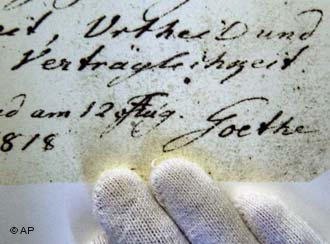 eit, Urtheil und
Verträglichkeit
ad am 12 Aug.
1818
Goethe
© AP